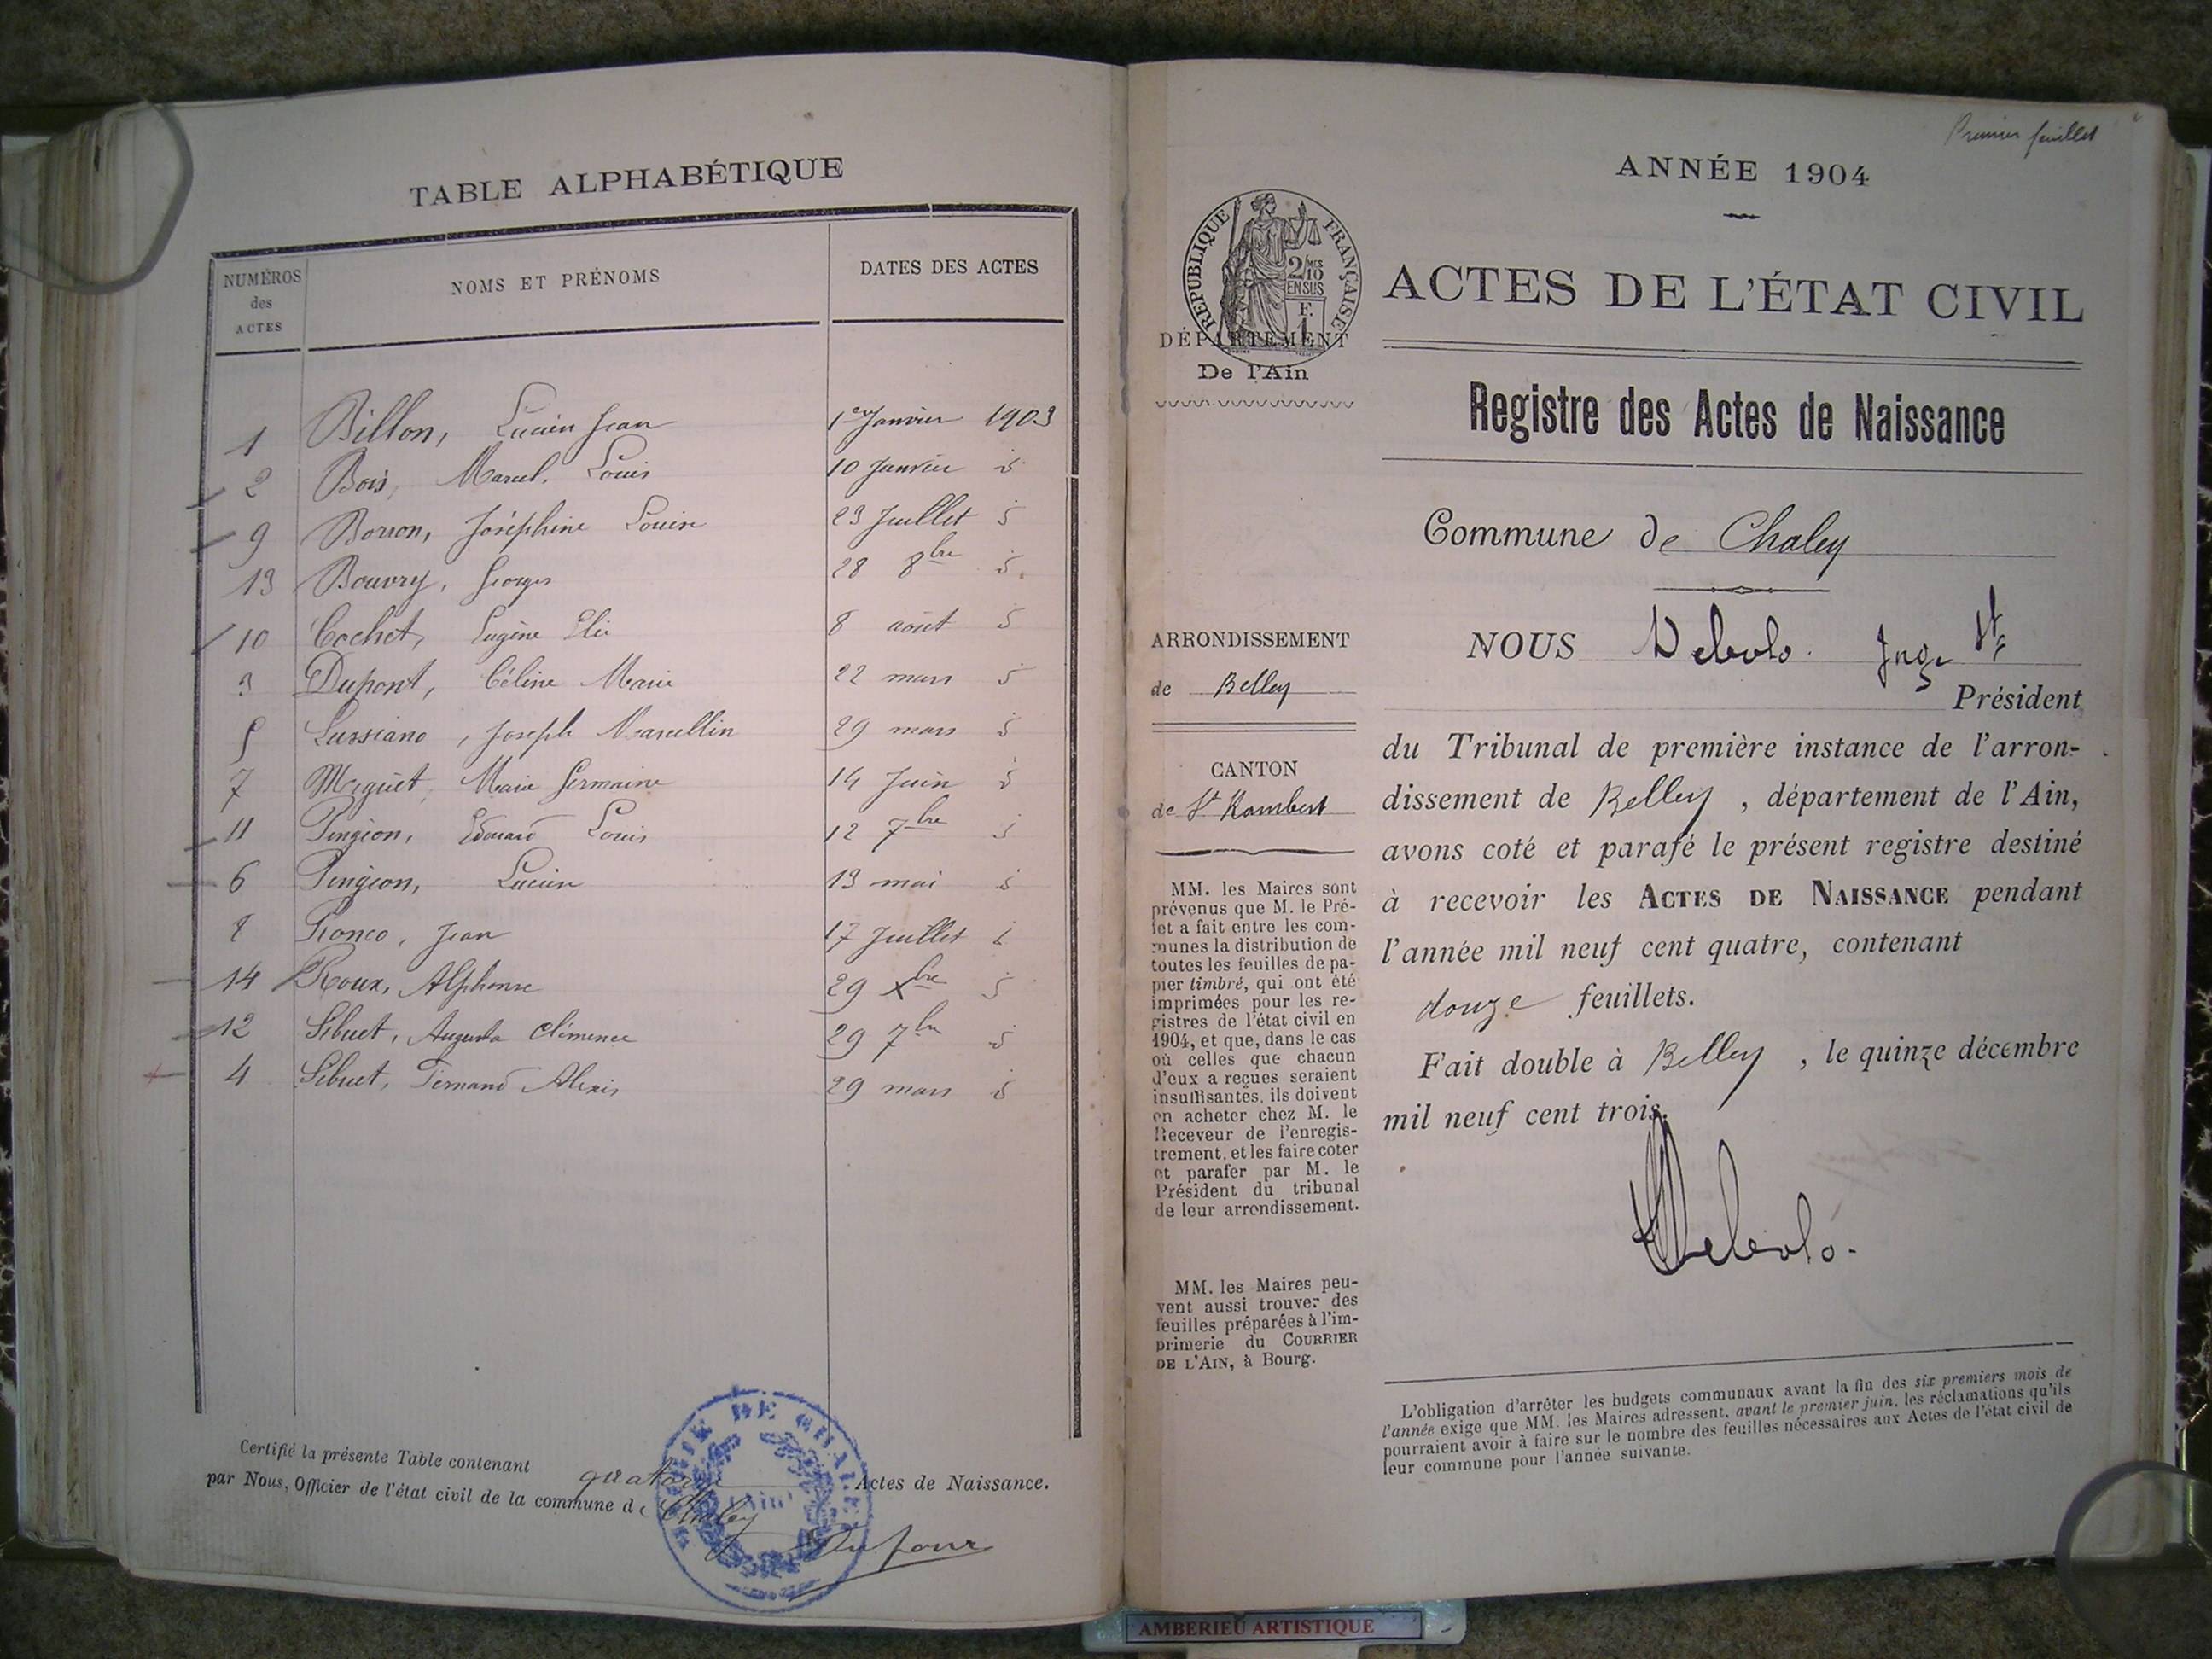 TABLE ALPHABÉTIQUE
NUMÉROS des ACTES NOMS ET PRÉNOMS DATES DES ACTES
1 Billon, Lucien Jean 1er Janvier 1903
2 Bois, Marcel, Louis 10 Janvier id
9 Borron, Joséphine Louise 23 Juillet id
13 Bouvry, Georges 28 8bre id.
10 Cochet, Eugène Elie 8 août id
3 Dupont, Céline Marie 22 mars id
5 Lussiano, Joseph Marcellin 29 mars id
7 Miguet, Marie Germaine 14 Juin id
11 Pingeon, Edouard Louis 12 7bre id
6 Pingeon, Lucien 13 mai id
8 Ronco, Jean 17 Juillet id
14 Roux, Alphonse 29 Xbre id
12 Sibuet, Augusta Clémence 29 7bre id
4 Sibuet, Fernand Alexis 29 mars id
Certifié la présente Table contenant quatorze Actes de Naissance.
par Nous, Officier de l'état civil de la commune de Chaley
Dufour
MAIRIE DE CHALEY
(Ain)
Premier feuillet
ANNÉE 1904
RÉPUBLIQUE FRANÇAISE
2/10MES
EN SUS
F.
1
DÉPARTEMENT
De l'Ain
ACTES DE L'ÉTAT CIVIL
Registre des Actes de Naissance
Commune de Chaley
ARRONDISSEMENT
de Belley
CANTON
de St Rambert
MM. les Maires sont
prévenus que M. le Pré-
fet a fait entre les com-
munes la distribution de
toutes les feuilles de pa-
pier timbré, qui ont été
imprimées pour les re-
gistres de l'état civil en
1904, et que, dans le cas
où celles que chacun
d'eux a reçues seraient
insuffisantes, ils doivent
en acheter chez M. le
Receveur de l'enregis-
trement, et les faire coter
et parafer par M. le
Président du tribunal
de leur arrondissement.
MM. les Maires peu-
vent aussi trouver des
feuilles préparées à l'im-
primerie du COURRIER
DE L'AIN, à Bourg.
NOUS Debolo. Juge
Président
du Tribunal de première instance de l'arron-
dissement de Belley, département de l'Ain,
avons coté et parafé le présent registre destiné
à recevoir les ACTES DE NAISSANCE pendant
l'année mil neuf cent quatre, contenant
douze feuillets.
Fait double à Belley, le quinze décembre
mil neuf cent trois.
Debolo.
L'obligation d'arrêter les budgets communaux avant la fin des six premiers mois de
l'année exige que MM. les Maires adressent, avant le premier juin, les réclamations qu'ils
pourraient avoir à faire sur le nombre des feuilles nécessaires aux Actes de l'état civil de
leur commune pour l'année suivante.
AMBERIEU ARTISTIQUE